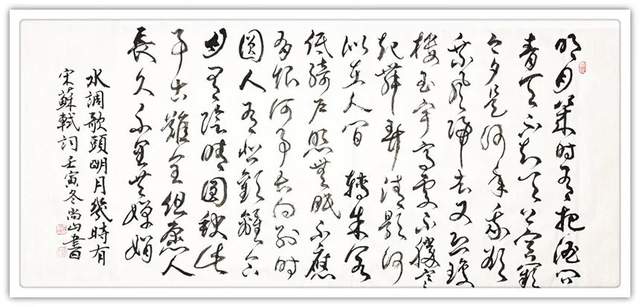 明月幾時有把酒問
青天不知天上宮闕
今夕是何年我欲
乘風歸去又恐瓊
樓玉宇高處不勝寒
起舞弄清影何
似在人間 轉朱閣
低綺户照無眠不應
有恨何事長向別時
圓人有悲歡離合
月有陰晴圓缺此
事古難全但願人
長久千里共嬋娟
水調歌頭明月幾時有
宋蘇軾詞壬寅冬尚山書